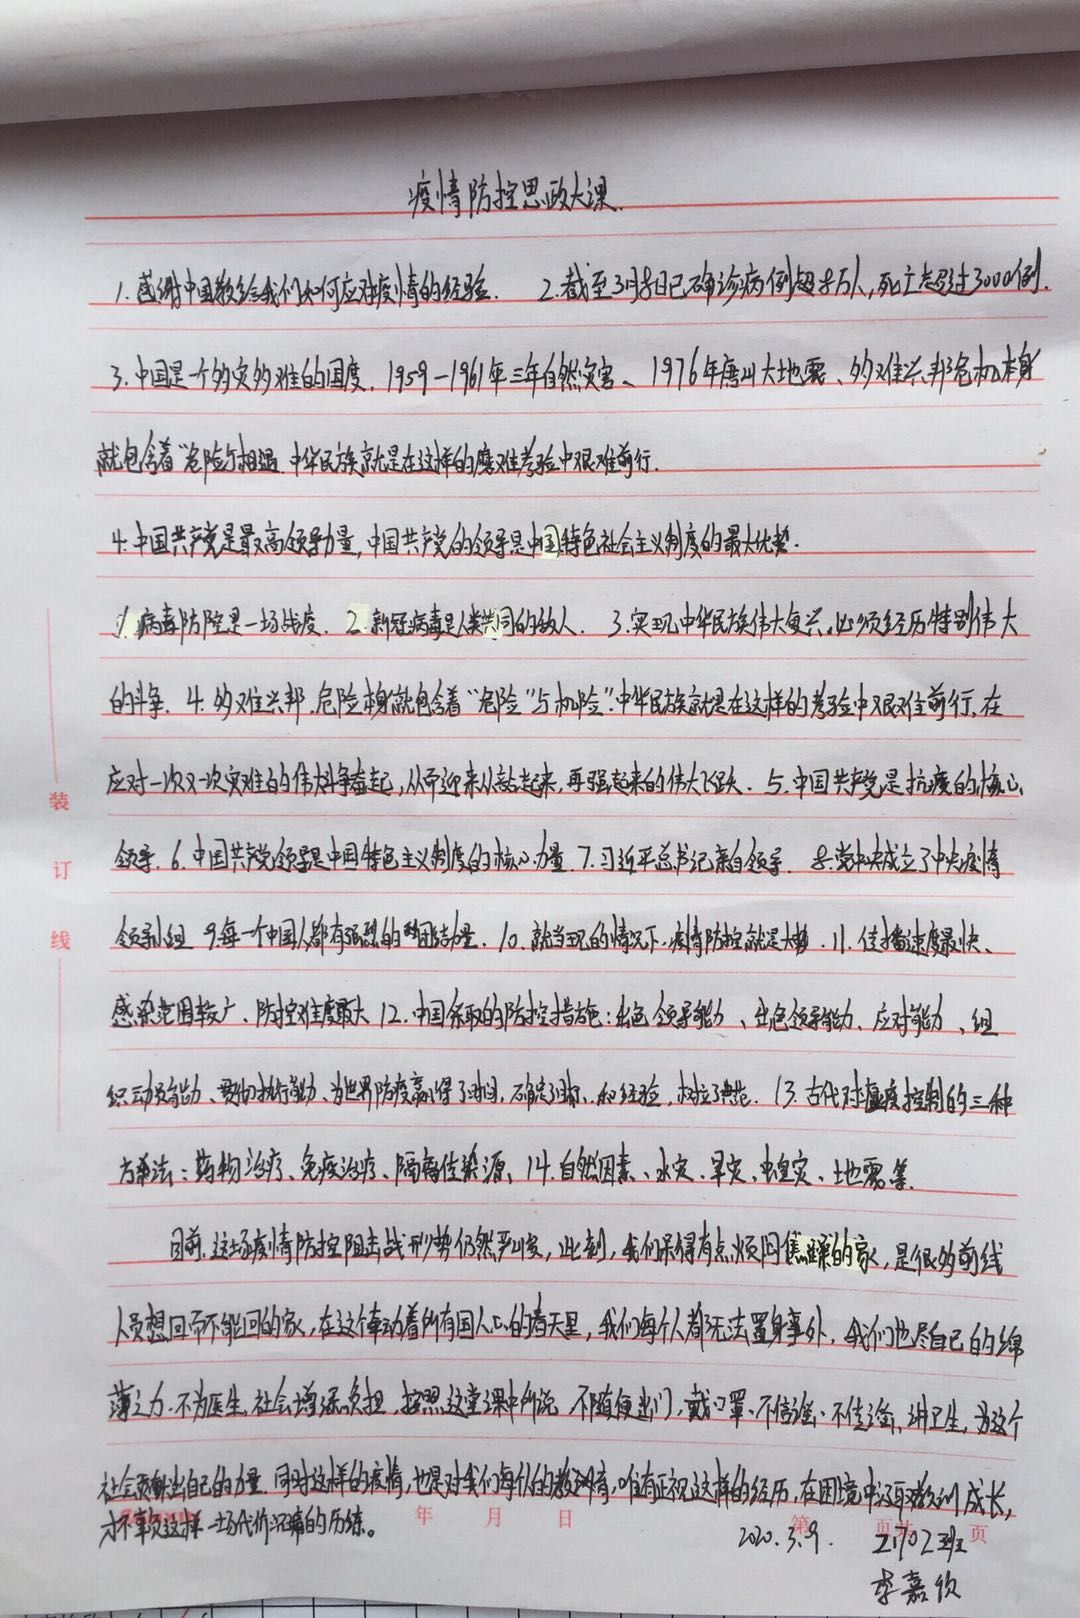 疫情防控思政大课.
1.感谢中国教给我们如何应对疫情的经验. 2.截至3月8日已确诊病例超8万人,死亡超过3000例.
3.中国是一个多灾多难的国度.1959-1961年三年自然灾害、1976年唐山大地震、多难兴邦危机本身
就包含着“危险与相遇.中华民族就是在这样的磨难考验中艰难前行.
4.中国共产党是最高领导力量,中国共产党的领导是中国特色社会主义制度的最大优势.
1.病毒防控是一场战疫. 2.新冠病毒是人类共同的敌人. 3.实现中华民族伟大复兴,必须经历特别伟大
的斗争. 4.多难兴邦.危险本身就包含着“危险”与机险”.中华民族就是在这样的考验中艰难前行.在
应对一次又一次灾难的的伟大斗争奋起,从而迎来从站起来,再强起来的伟大飞跃. 5.中国共产党是抗疫的核心
领导. 6.中国共产党领导是中国特色主义制度的核心力量 7.习近平总书记亲自领导. 8.党中央成立了中央疫情
领导小组 9.每一个中国人都有强烈的团结力量. 10.就当现的情况下.疫情防控就是大势. 11.传播速度最快、
感染范围较广、防控难度最大 12.中国采取的防控措施:出色领导能力、出色领导能力、应对能力、组
织动员能力、贯彻执行能力、为世界防疫赢得了时间,确定了目标、和经验,树立了典范. 13.古代对瘟疫控制的三种
方法:药物治疗、免疫治疗、隔离传染源、14.自然因素、水灾、旱灾、蝗灾、地震等.
目前,这场疫情防控阻击战形势仍然严峻,此刻,我们呆得有点烦闷焦躁的家,是很多前线
人员想回而不能回的家,在这个牵动着所有国人心的春天里,我们每个人都无法置身事外,我们也尽自己的绵
薄之力.不为医生、社会增添负担,按照这堂课中所说 不随便出门,戴口罩、不信谣、不传谣、讲卫生,为这个
社会贡献出自己的力量.同时这样的疫情,也是对我们每个人的教育,唯有正视这样的经历,在困境中汲取教训成长,
才不辜负这样一场代价沉痛的历练。
2020.3.9. 21702班
李嘉欣
装
订
线
年 月 日 第 页共 页